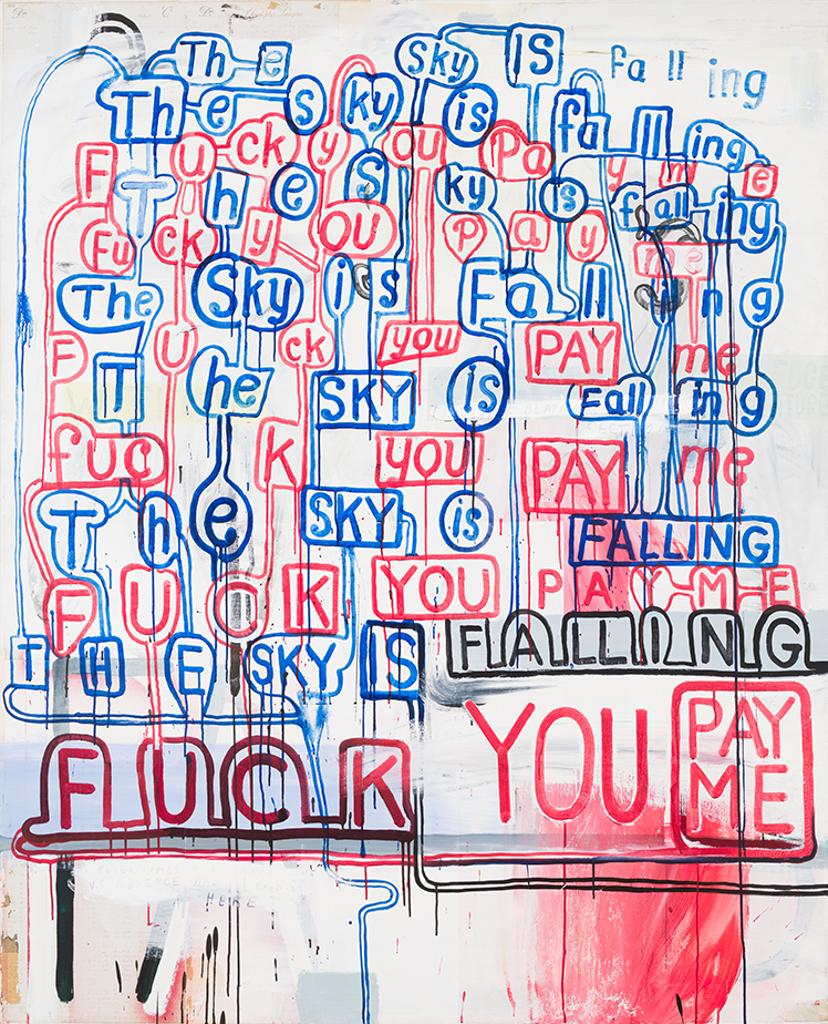 The Sky IS falling
The sky is falling
Fuck you Pay me
The Sky is falling
Fuck you pay me
The Sky is Falling
Fuck you PAY me
The SKY is Falling
fuck you PAY me
The SKY is FALLING
FUCK YOU PAY ME
THE SKY IS FALLING
FUCK YOU PAY
ME
HERE